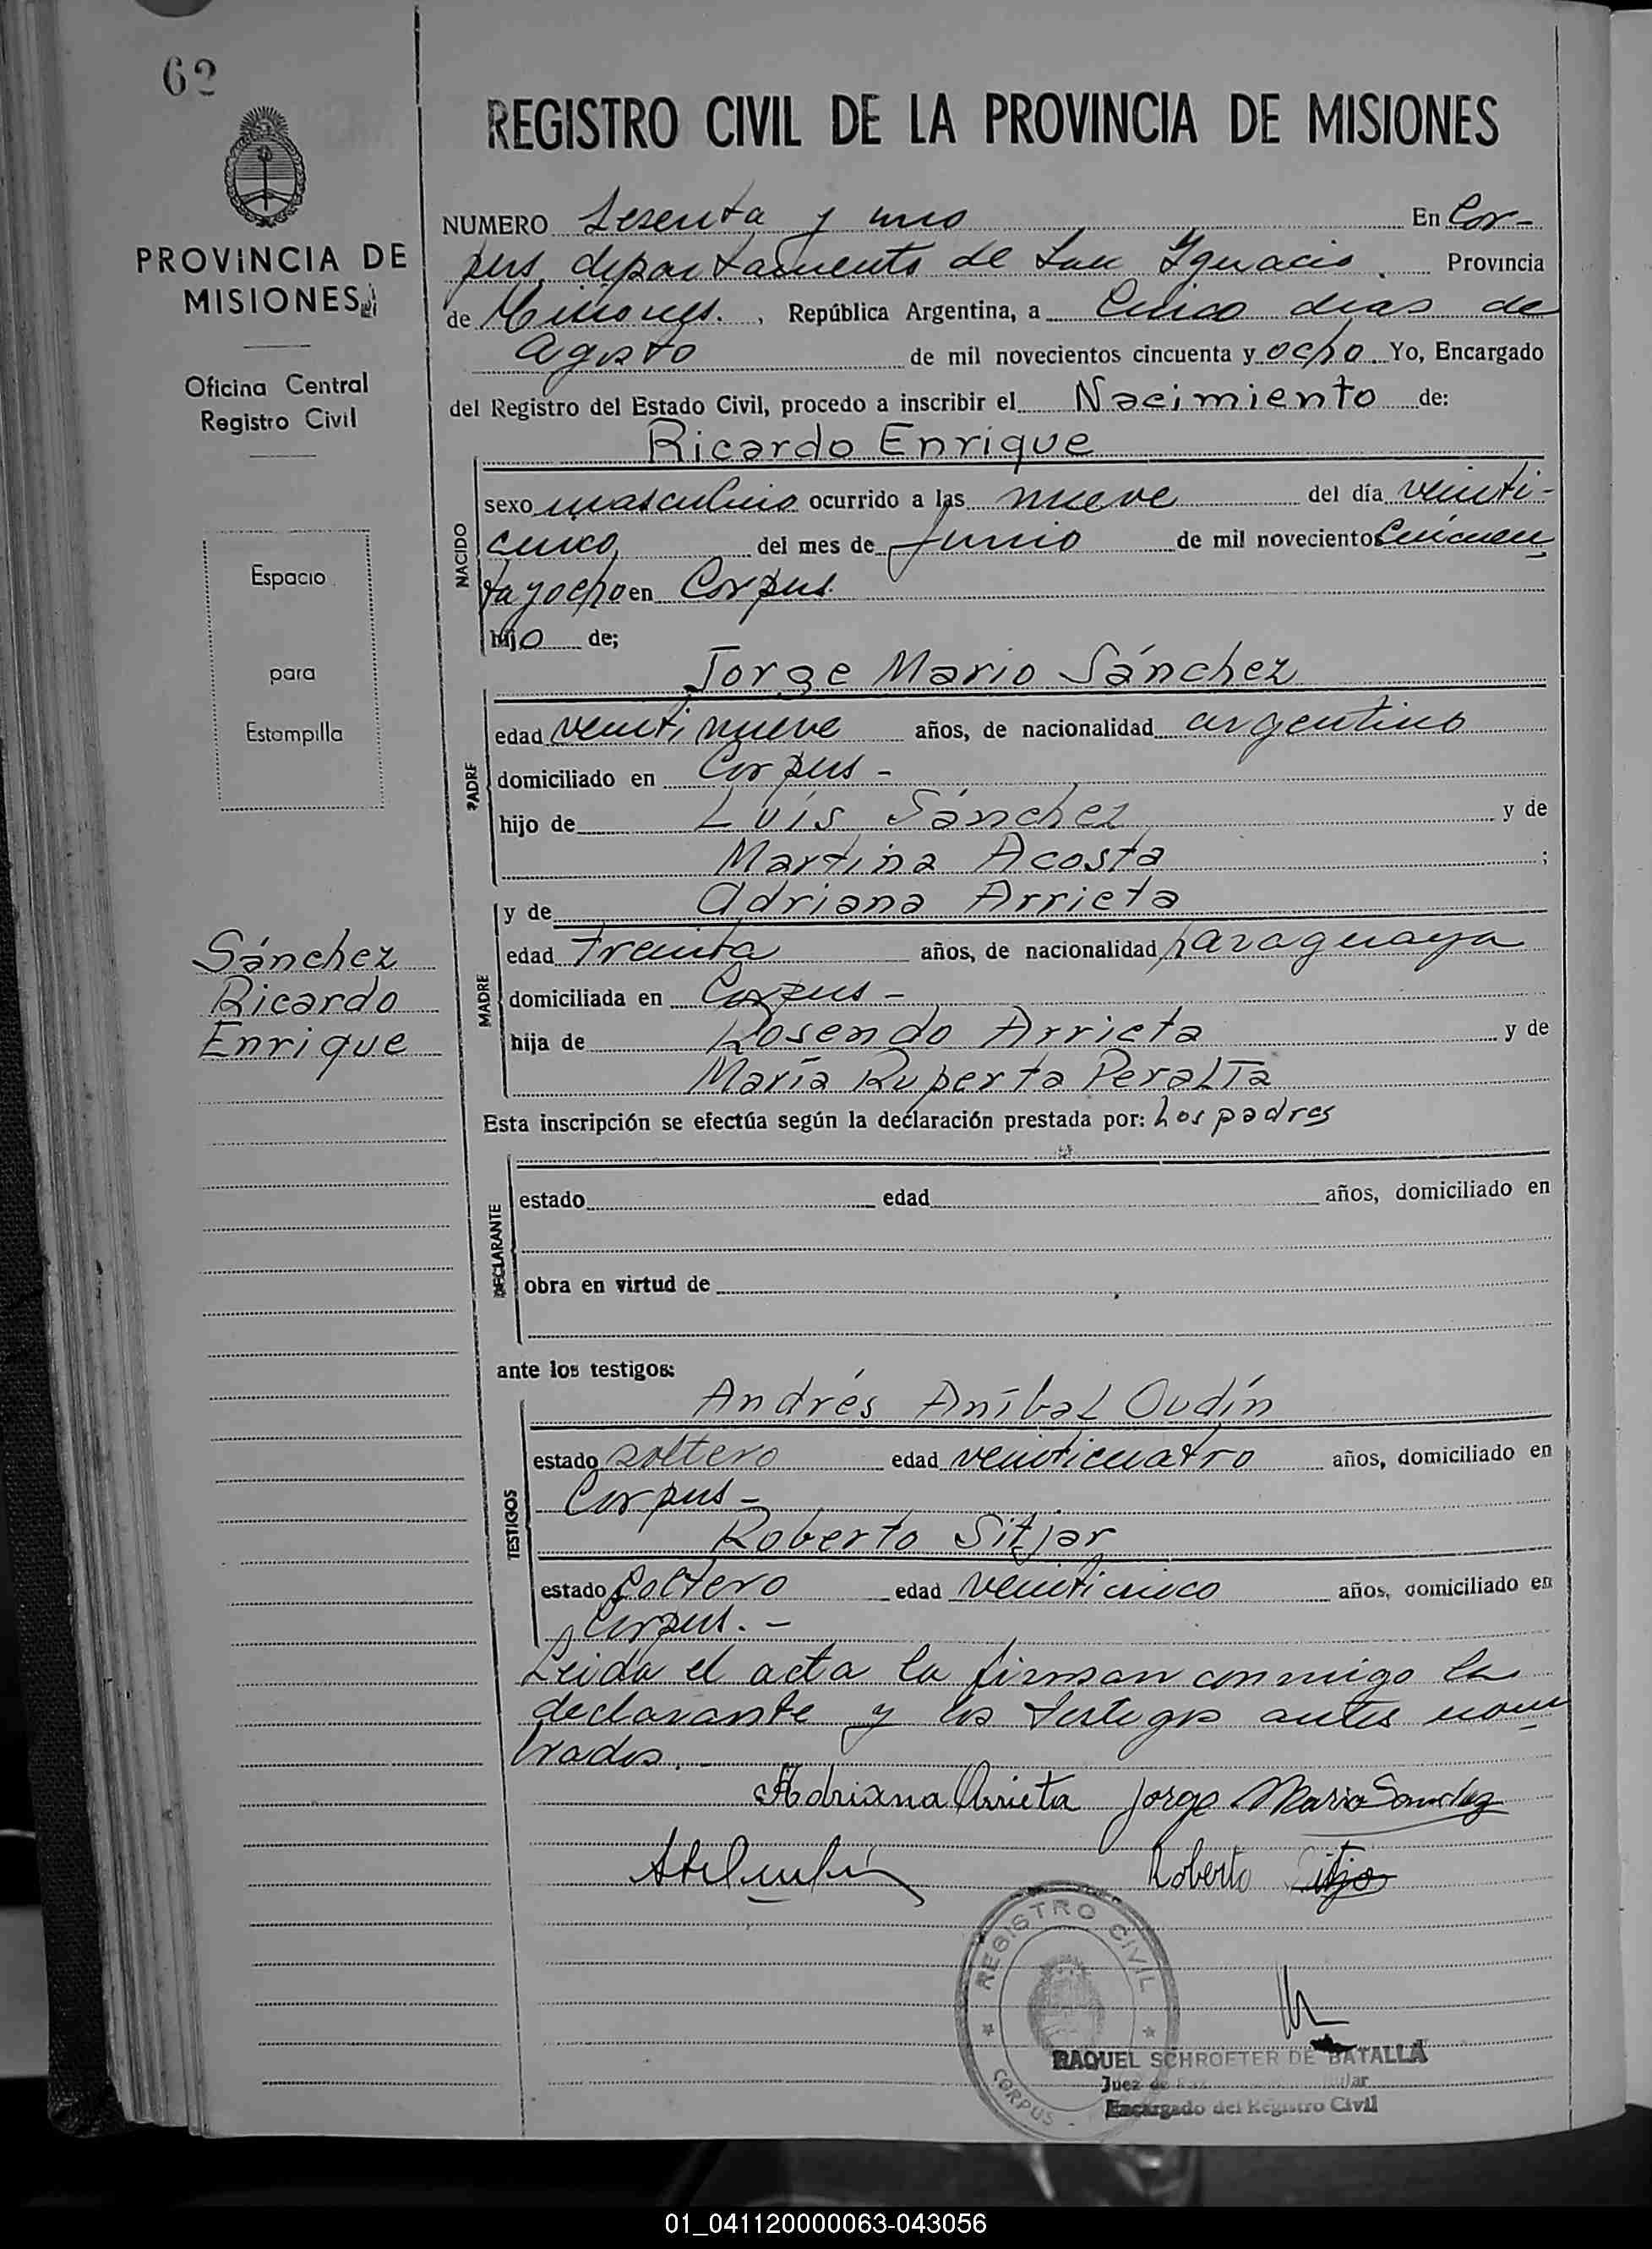 62
REGISTRO CIVIL DE LA PROVINCIA DE MISIONES
PROVINCIA DE
MISIONES
Oficina Central
Registro Civil
Espacio
para
Estampilla
Sánchez
Ricardo
Enrique
NUMERO Sesenta y uno En Cor-
pus departamento de San Ygnacio. Provincia
de Misiones. , República Argentina, a Cinco dias de
Agosto de mil novecientos cincuenta y ocho Yo, Encargado
del Registro del Estado Civil, procedo a inscribir el Nacimiento de:
Ricardo Enrique
NACIDO
sexo masculino ocurrido a las nueve del día veinti-
cinco del mes de Junio de mil novecientos Cincuen
ta y ocho en Corpus.
hijo de;
Jorge Mario Sánchez
PADRE
edad veinti nueve años, de nacionalidad argentino
domiciliado en Corpus -
hijo de Luís Sánchez y de
Martina Acosta ;
y de Adriana Arrieta
MADRE
edad Treinta años, de nacionalidad paraguaya
domiciliada en Corpus -
hija de Rosendo Arrieta y de
María Ruperta Peralta
Esta inscripción se efectúa según la declaración prestada por: Los padres
DECLARANTE
estado edad años, domiciliado en
obra en virtud de
ante los testigos:
Andrés Aníbal Oudín
TESTIGOS
estado soltero edad veinticuatro años, domiciliado en
Corpus -
Roberto Sitjar
estado Soltero edad veinticinco años, domiciliado en
Corpus. -
Leida el acta la firman conmigo la
declarante y los testigos antes nom
brados. -
Adriana Arrieta Jorge Mario Sanchez
Roberto Sitja
REGISTRO CIVIL
CORPUS
RAQUEL SCHROETER DE BATALLA
Juez de Paz
Encargado del Registro Civil
01_041120000063-043056